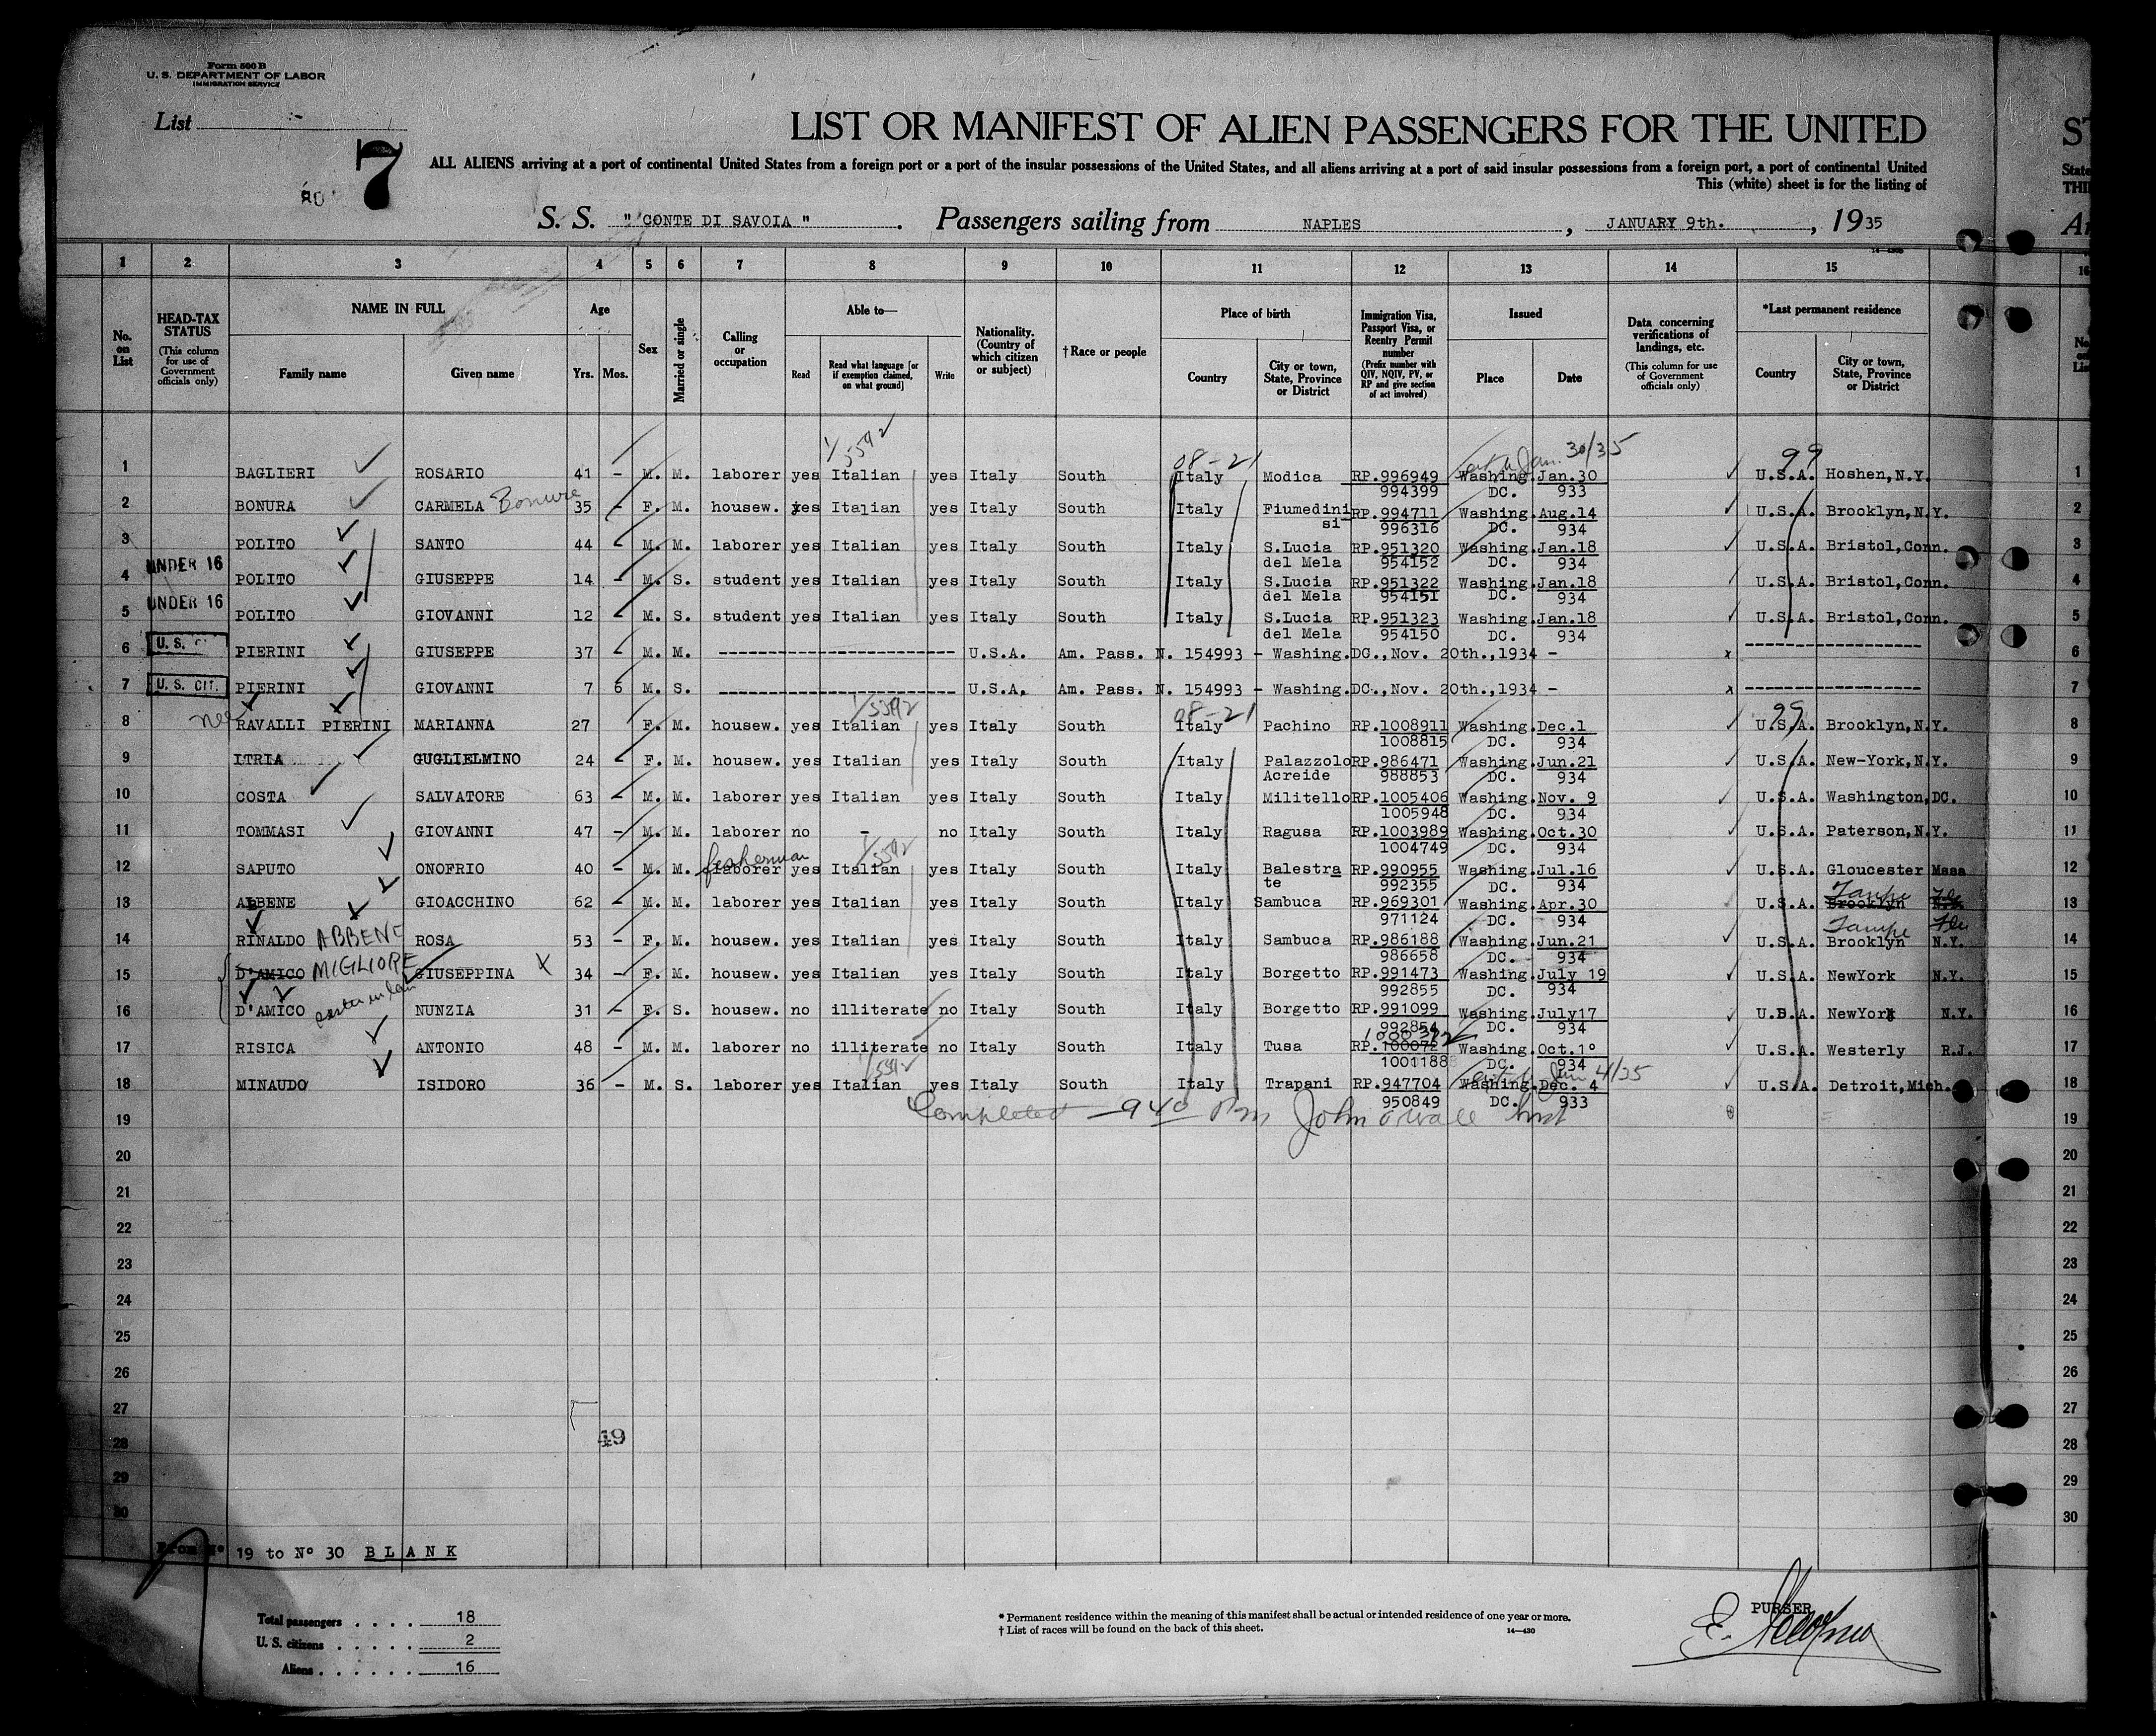 Form 500 B
U. S. DEPARTMENT OF LABOR
IMMIGRATION SERVICE
List
7
LIST OR MANIFEST OF ALIEN PASSENGERS FOR THE UNITED
ALL ALIENS arriving at a port of continental United States from a foreign port or a port of the insular possessions of the United States, and all aliens arriving at a port of said insular possessions from a foreign port, a port of continental United
This (white) sheet is for the listing of
S. S. " CONTE DI SAVOIA ". Passengers sailing from NAPLES, JANUARY 9th., 1935
1 2 3 4 5 6 7 8 9 10 11 12 13 14 15
No. on List
HEAD-TAX STATUS (This column for use of Government officials only)
NAME IN FULL Family name Given name
Age Yrs. Mos.
Sex
Married or single
Calling or occupation
Able to— Read Read what language [or if exemption claimed, on what ground] Write
Nationality. (Country of which citizen or subject)
† Race or people
Place of birth Country City or town, State, Province or District
Immigration Visa, Passport Visa, or Reentry Permit number (Prefix number with QIV, NQIV, PV, or RP and give section of act involved)
Issued Place Date
Data concerning verifications of landings, etc. (This column for use of Government officials only)
*Last permanent residence Country City or town, State, Province or District
1/5592 08-21 Jan. 30/35 99
1 BAGLIERI ROSARIO 41 - M. M. laborer yes Italian yes Italy South Italy Modica RP.996949 Washing. Jan.30 U.S.A. Hoshen, N.Y. 1
994399 DC. 933
2 BONURA CARMELA Bonura 35 - F. M. housew. yes Italian yes Italy South Italy Fiumedini RP.994711 Washing. Aug.14 U.S.A. Brooklyn, N.Y. 2
si- 996316 DC. 934
3 POLITO SANTO 44 - M. M. laborer yes Italian yes Italy South Italy S.Lucia RP.951320 Washing. Jan.18 U.S.A. Bristol, Conn. 3
del Mela 954152 DC. 934
4 UNDER 16 POLITO GIUSEPPE 14 - M. S. student yes Italian yes Italy South Italy S.Lucia RP.951322 Washing. Jan.18 U.S.A. Bristol, Conn. 4
del Mela 954151 DC. 934
5 UNDER 16 POLITO GIOVANNI 12 - M. S. student yes Italian yes Italy South Italy S.Lucia RP.951323 Washing. Jan.18 U.S.A. Bristol, Conn. 5
del Mela 954150 DC. 934
6 U.S. PIERINI GIUSEPPE 37 - M. M. U.S.A. Am. Pass. N. 154993 - Washing. DC., Nov. 20th., 1934 - x 6
7 U.S. CIT. PIERINI GIOVANNI 7 6 M. S. U.S.A. Am. Pass. N. 154993 - Washing. DC., Nov. 20th., 1934 - x 7
1/5592 08-21 99
8 nee RAVALLI PIERINI MARIANNA 27 F. M. housew. yes Italian yes Italy South Italy Pachino RP.1008911 Washing. Dec.1 U.S.A. Brooklyn, N.Y. 8
1008815 DC. 934
9 ITRIA GUGLIELMINO 24 - F. M. housew. yes Italian yes Italy South Italy Palazzolo RP.986471 Washing. Jun.21 U.S.A. New-York, N.Y. 9
Acreide 988853 DC. 934
10 COSTA SALVATORE 63 - M. M. laborer yes Italian yes Italy South Italy Militello RP.1005406 Washing. Nov. 9 U.S.A. Washington, DC. 10
1005948 DC. 934
11 TOMMASI GIOVANNI 47 - M. M. laborer no - no Italy South Italy Ragusa RP.1003989 Washing. Oct.30 U.S.A. Paterson, N.Y. 11
1004749 DC. 934
fisherman 1/5592
12 SAPUTO ONOFRIO 40 - M. M. laborer yes Italian yes Italy South Italy Balestra RP.990955 Washing. Jul.16 U.S.A. Gloucester Mass 12
te 992355 DC. 934
Tampa Fla
13 ABBENE GIOACCHINO 62 - M. M. laborer yes Italian yes Italy South Italy Sambuca RP.969301 Washing. Apr.30 U.S.A. Brooklyn N.Y. 13
971124 DC. 934
Tampa Fla
14 RINALDO ABBENE ROSA 53 - F. M. housew. yes Italian yes Italy South Italy Sambuca RP.986188 Washing. Jun.21 U.S.A. Brooklyn N.Y. 14
986658 DC. 934
15 D'AMICO MIGLIORE GIUSEPPINA X 34 - F. M. housew. yes Italian yes Italy South Italy Borgetto RP.991473 Washing. July 19 U.S.A. NewYork N.Y. 15
992855 DC. 934
16 D'AMICO sister in law NUNZIA 31 - F. S. housew. no illiterate no Italy South Italy Borgetto RP.991099 Washing. July17 U.S.A. NewYork N.Y. 16
992854 DC. 934
17 RISICA ANTONIO 48 - M. M. laborer no illiterate no Italy South Italy Tusa RP.100072 Washing. Oct.1º U.S.A. Westerly R.J. 17
1001188 DC. 934
1/5592 4/35
18 MINAUDO ISIDORO 36 - M. S. laborer yes Italian yes Italy South Italy Trapani RP.947704 Washing. Dec. 4 U.S.A. Detroit, Mich. 18
950849 DC. 933
Completed - 9 40 Pm John
19 19
20 20
21 21
22 22
23 23
24 24
25 25
26 26
27 27
49
28 28
29 29
30 30
From Nº 19 to Nº 30 B L A N K
Total passengers . . . . 18
U. S. citizens . . . . . 2
Aliens . . . . . . 16
* Permanent residence within the meaning of this manifest shall be actual or intended residence of one year or more.
† List of races will be found on the back of this sheet.
14—430
PURSER